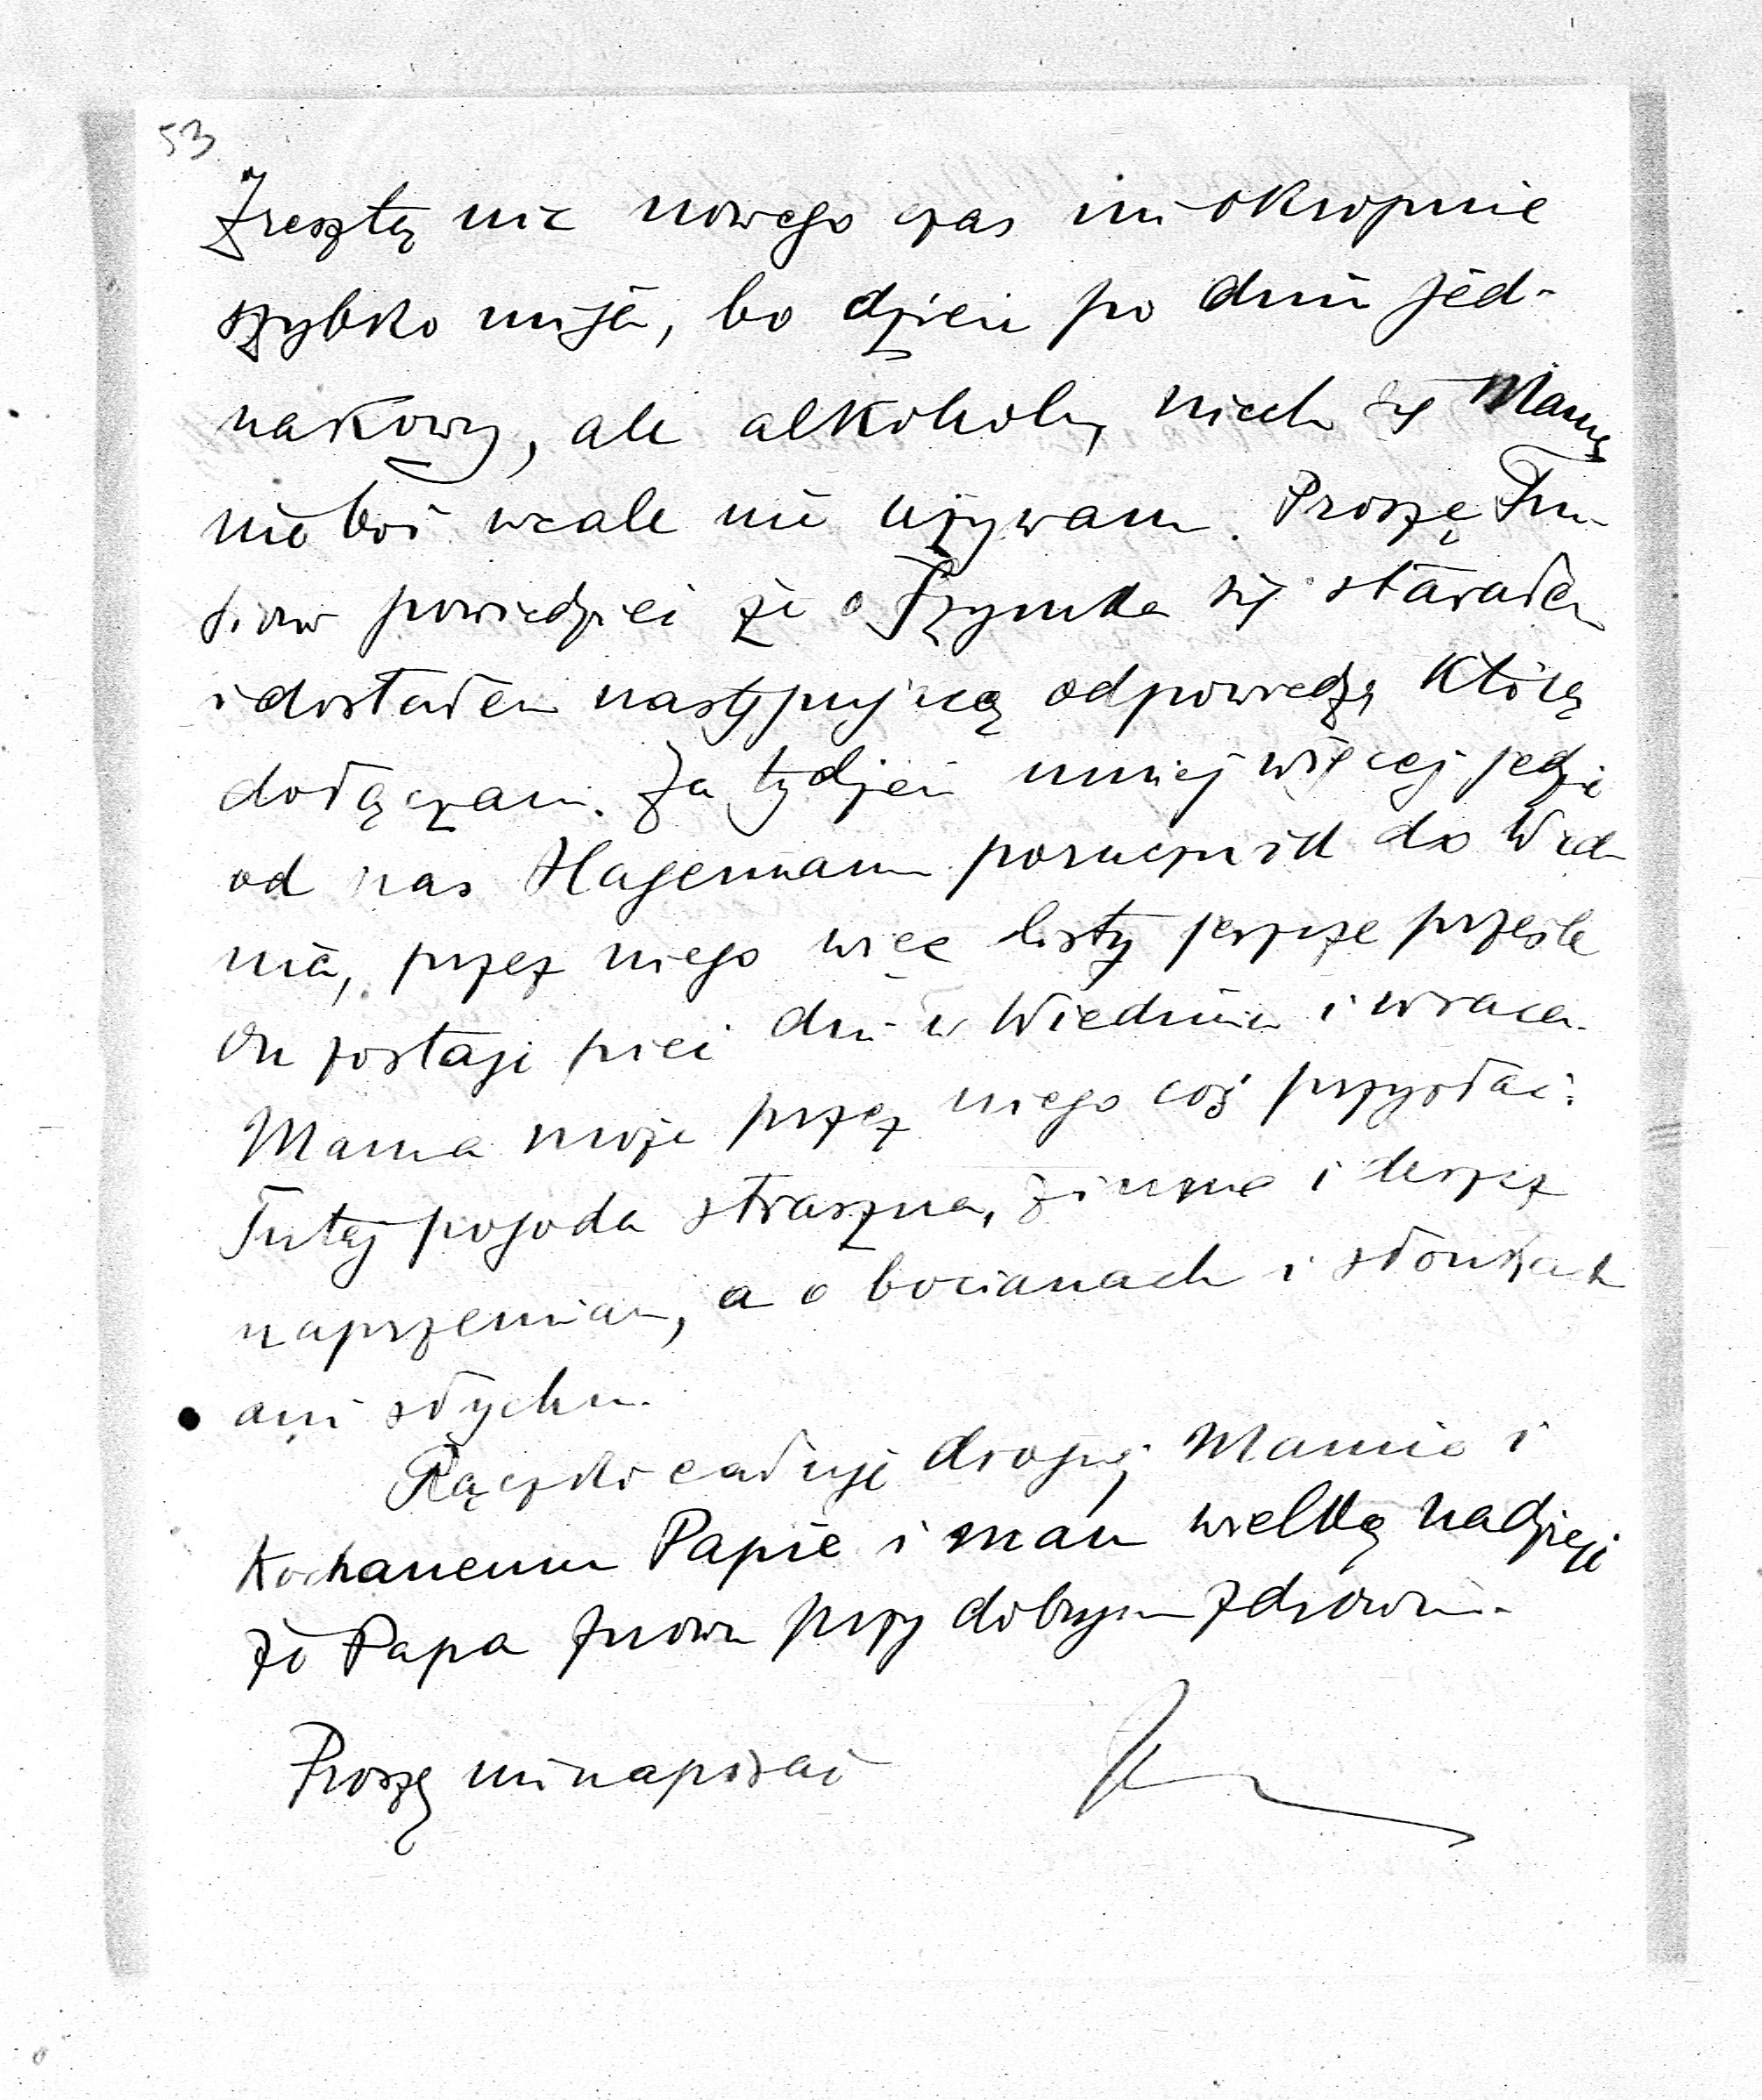 53
Zresztą nic nowego czas mi okropnie
szybko mija, bo dzień po dniu jed-
nakowy, ale alkoholu, niech się Mama
nie boi wcale nie używam. Proszę Tru-
siow powiedzieć że o Szymka się starałem
i dostałem następującą odpowiedź, którą
dołączam. Za tydzień mniej więcej jedzie
od nas Hagemann porucznik do Wied-
nia, przez niego więc listy jeszcze prześlę
On zostaje pięć dni w Wiedniu i wraca.
Mama może przez niego coś przysłać.
Tutaj pogoda straszna, zimno i deszcz
naprzemian, a o bocianach i słonkach
ani słychu.
Rączki całuję drogiej Mamie i
Kochanemu Papie i mam wielką nadzieję
że Papa znowu przy dobrym zdrowiu.
Proszę mi napisać